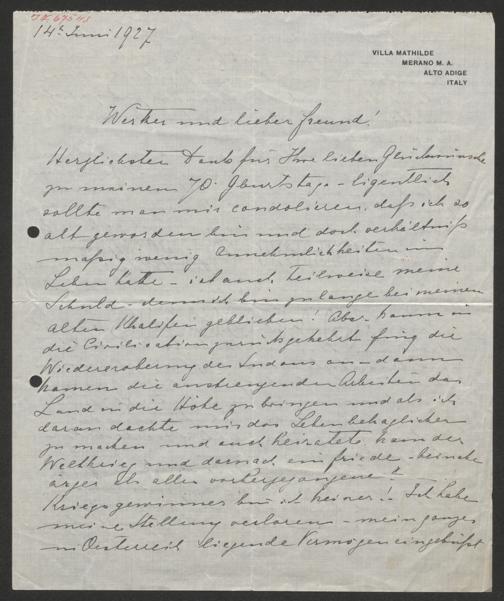 14t Juni 1927
VILLA MATHILDE
MERANO M. A.
ALTO ADIGE
ITALY
Werter und lieber Freund!
Herzlichsten Dank für Ihre lieben Glückwünsche
zu meinem 70. Geburtstage – Eigentlich
sollte man mir condolieren, daß ich so
alt geworden bin und doch verhältniß
mäßig wenig Annehmlichkeiten im
Leben hatte – ist auch teilweise meine
Schuld – denn ich bin zu lange bei meinem
alten Khalifen geblieben! Aber kaum in
die Civilisation zurückgekehrt fing die
Wiedereroberung des Sudans an – dann
kamen die anstrengenden Arbeiten das
Land in die Höhe zu bringen und als ich
daran dachte mir das Leben behaglicher
zu machen und auch heiratete, kam der
Weltkrieg und darnach ein Friede – beinahe
ärger als alles vorhergegangene!!
Kriegsgewinner bin ich keiner! Ich habe
meine Stellung verloren – mein ganzes
in Oesterreich liegende Vermögen eingebüßt